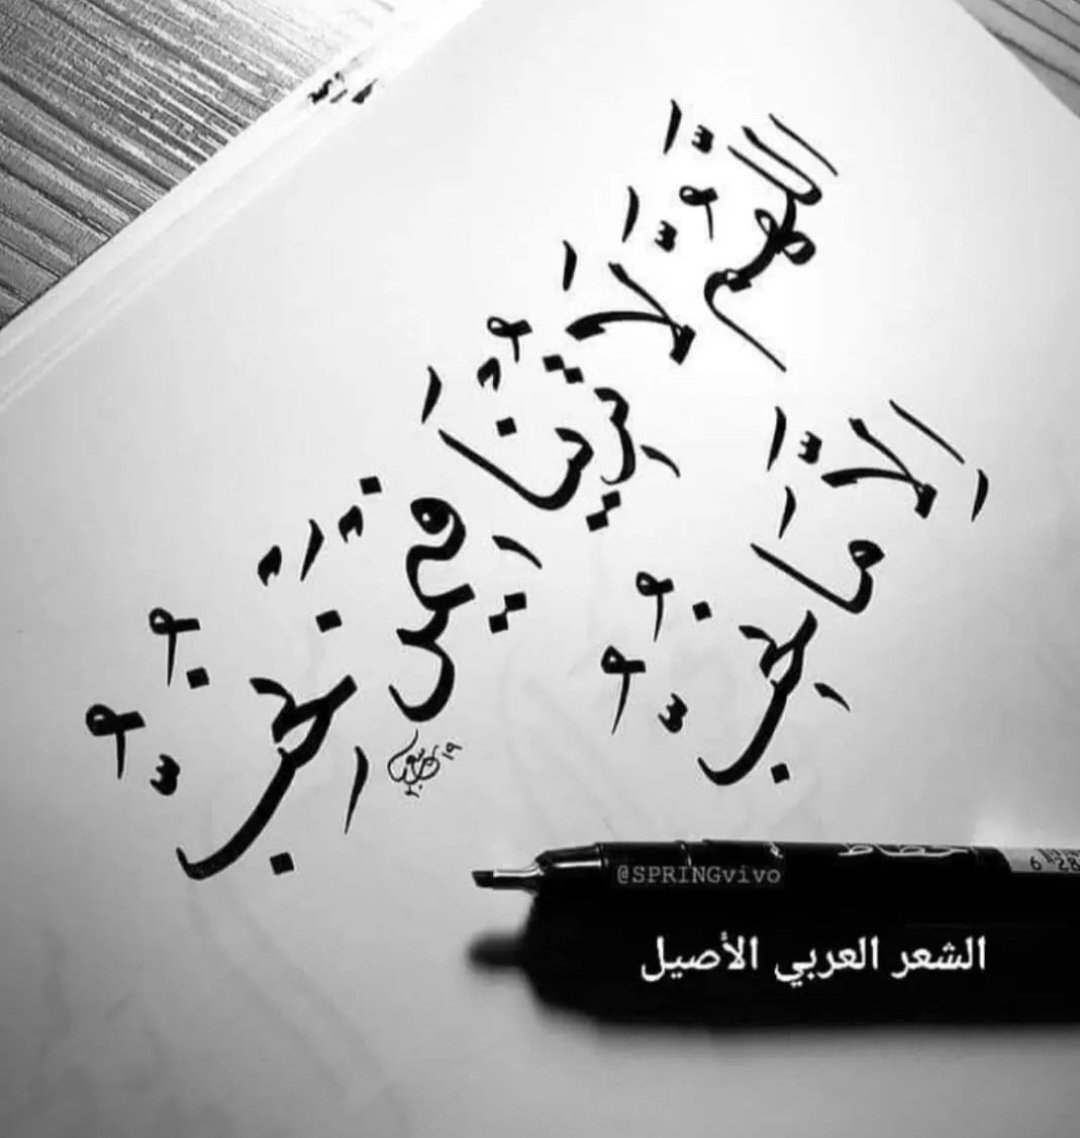 اللَّهُمَّ لَا تُرِينَا فِيمَنْ نُحِبُّ
إِلَّا مَا نُحِبُّ
@SPRINGvivo
خطاط
الشعر العربي الأصيل